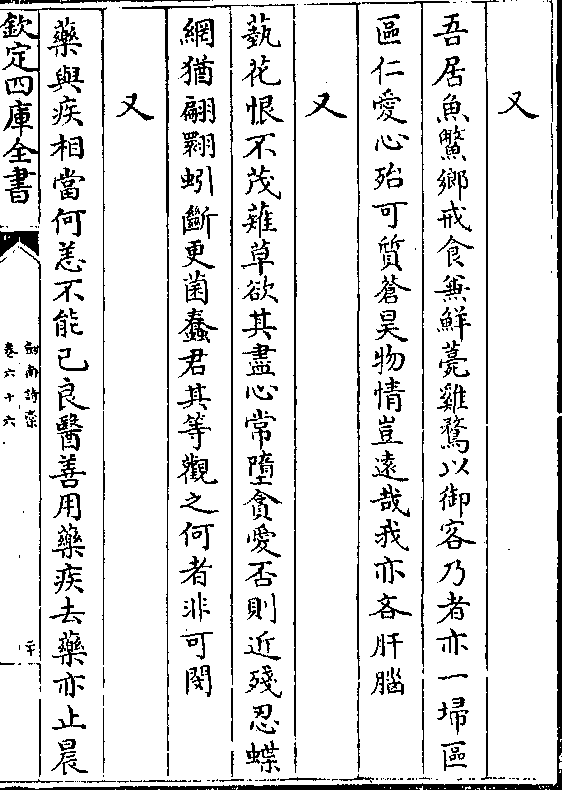 又
吾居魚鼈鄉戒食兼鮮薧雞鶩以御客乃者亦一埽區
區仁愛心殆可質蒼昊物情豈遠哉我亦吝肝腦
又
蓺花恨不茂薙草欲其盡心常墮貪愛否則近殘忍蝶
網猶翩翾蚓斷更菌蠢君其等觀之何者非可閔
又
藥與疾相當何恙不能已良醫善用藥疾去藥亦止晨
欽定四庫全書
劍南詩稾
卷六十六
二十